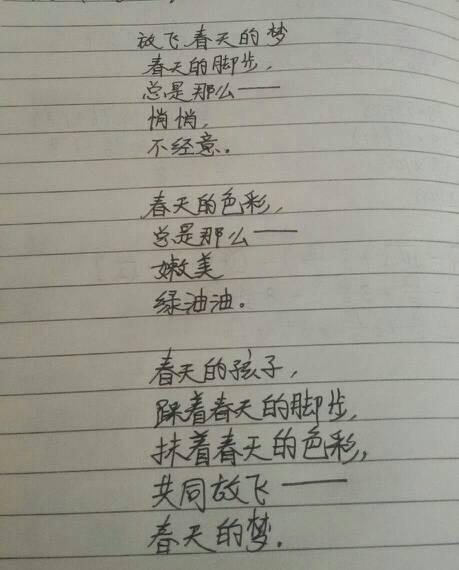 放飞春天的梦
春天的脚步，
总是那么——
悄悄，
不经意。
春天的色彩，
总是那么——
嫩美
绿油油。
春天的孩子，
踩着春天的脚步，
抹着春天的色彩，
共同放飞——
春天的梦．